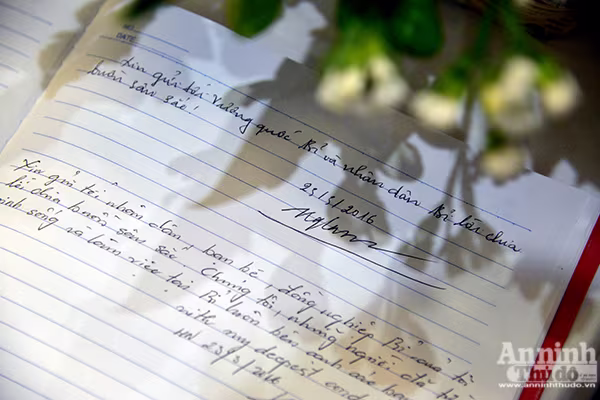 NO.
DATE
Xin gửi tới Vương quốc Bỉ và nhân dân Bỉ lời chia
buồn sâu sắc!
23/3/2016
Xin gửi tới nhân dân, bạn bè, đồng nghiệp Bỉ của tôi
lời chia buồn sâm sắc. Chúng tôi, những người đã từng
sinh sống và làm việc tại Bỉ luôn bên cạnh các bạn
with my deepest cond
HN 23/3/2016
An ninh
Thủ đô
www.anninhthudo.vn